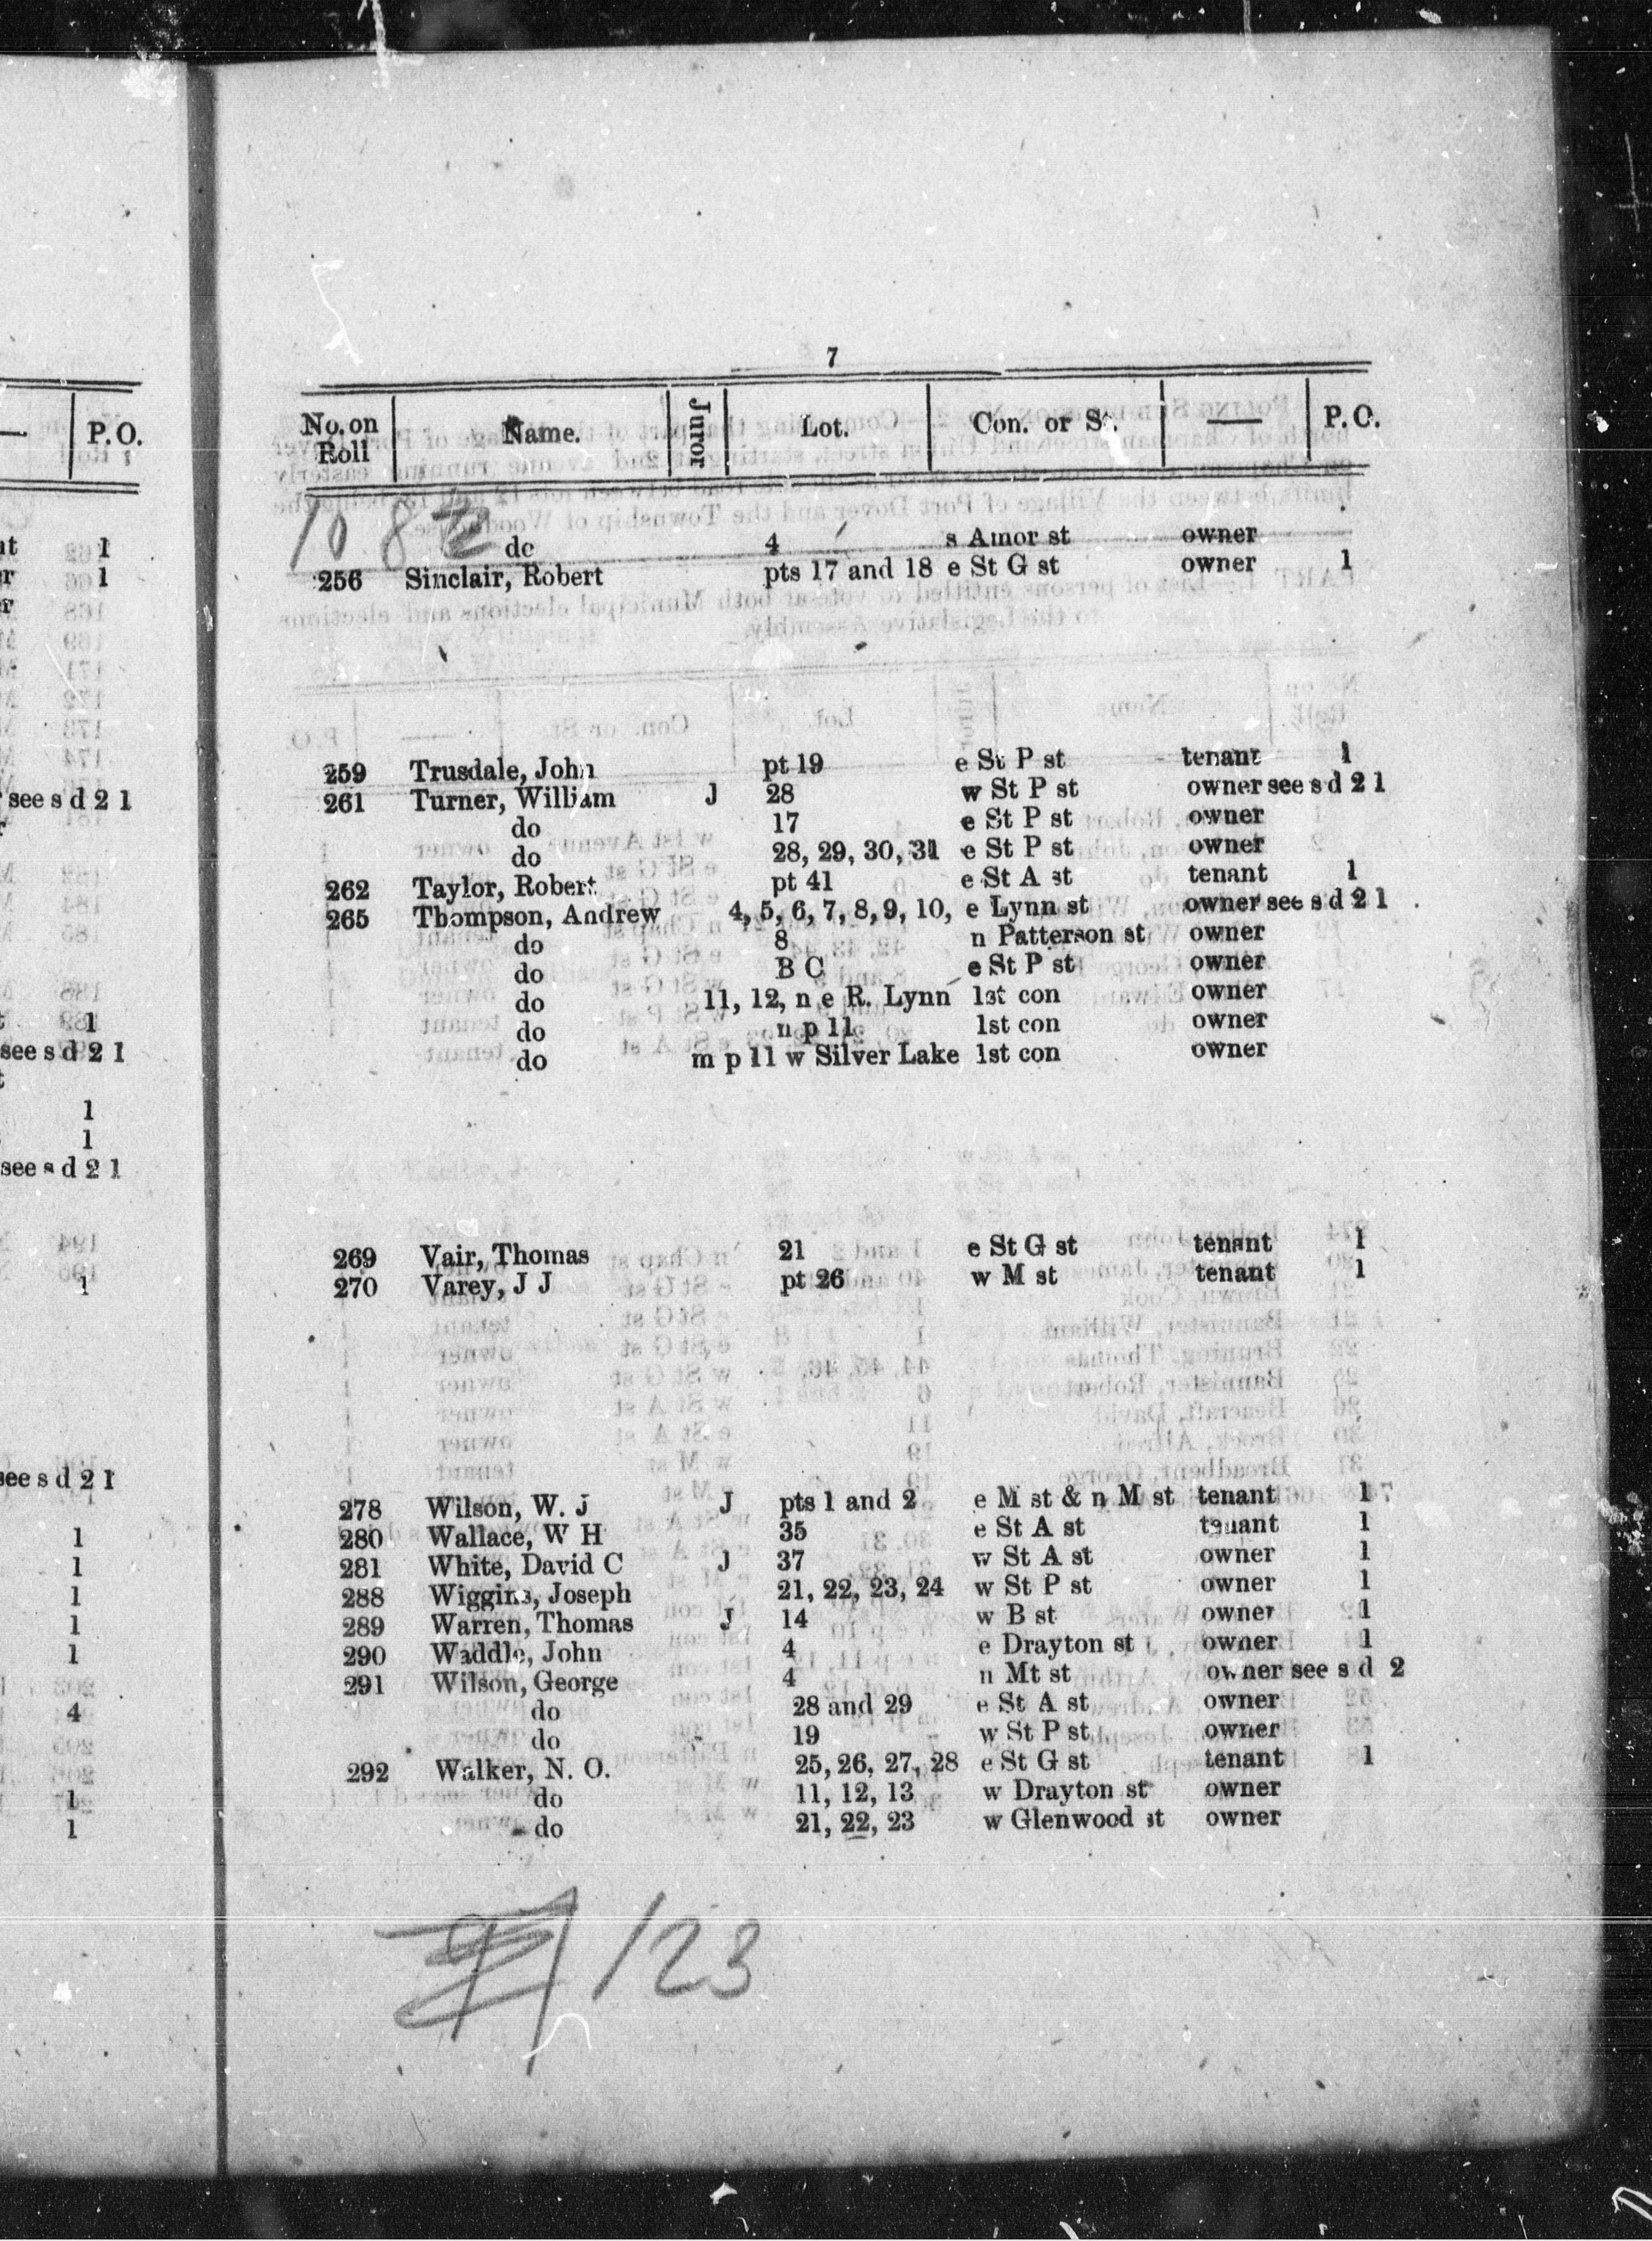 7
No. on Roll Name. Juror Lot. Con. or St. — P.O.
10 8
do 4 s Amor st owner
256 Sinclair, Robert pts 17 and 18 e St G st owner 1
259 Trusdale, John pt 19 e St P st tenant 1
261 Turner, William J 28 w St P st owner see s d 2 1
do 17 e St P st owner
do 28, 29, 30, 31 e St P st owner
262 Taylor, Robert pt 41 e St A st tenant 1
265 Thompson, Andrew 4, 5, 6, 7, 8, 9, 10, e Lynn st owner see s d 2 1
do 8 n Patterson st owner
do B C e St P st owner
do 11, 12, n e R. Lynn 1st con owner
do n p 11 1st con owner
do m p 11 w Silver Lake 1st con owner
269 Vair, Thomas 21 e St G st tenant 1
270 Varey, J J pt 26 w M st tenant 1
278 Wilson, W. J J pts 1 and 2 e M st & n M st tenant 1
280 Wallace, W H 35 e St A st tenant 1
281 White, David C J 37 w St A st owner 1
288 Wiggins, Joseph 21, 22, 23, 24 w St P st owner 1
289 Warren, Thomas J 14 w B st owner 1
290 Waddle, John 4 e Drayton st owner 1
291 Wilson, George 4 n Mt st owner see s d 2
do 28 and 29 e St A st owner
do 19 w St P st owner
292 Walker, N. O. 25, 26, 27, 28 e St G st tenant 1
do 11, 12, 13 w Drayton st owner
do 21, 22, 23 w Glenwood st owner
123